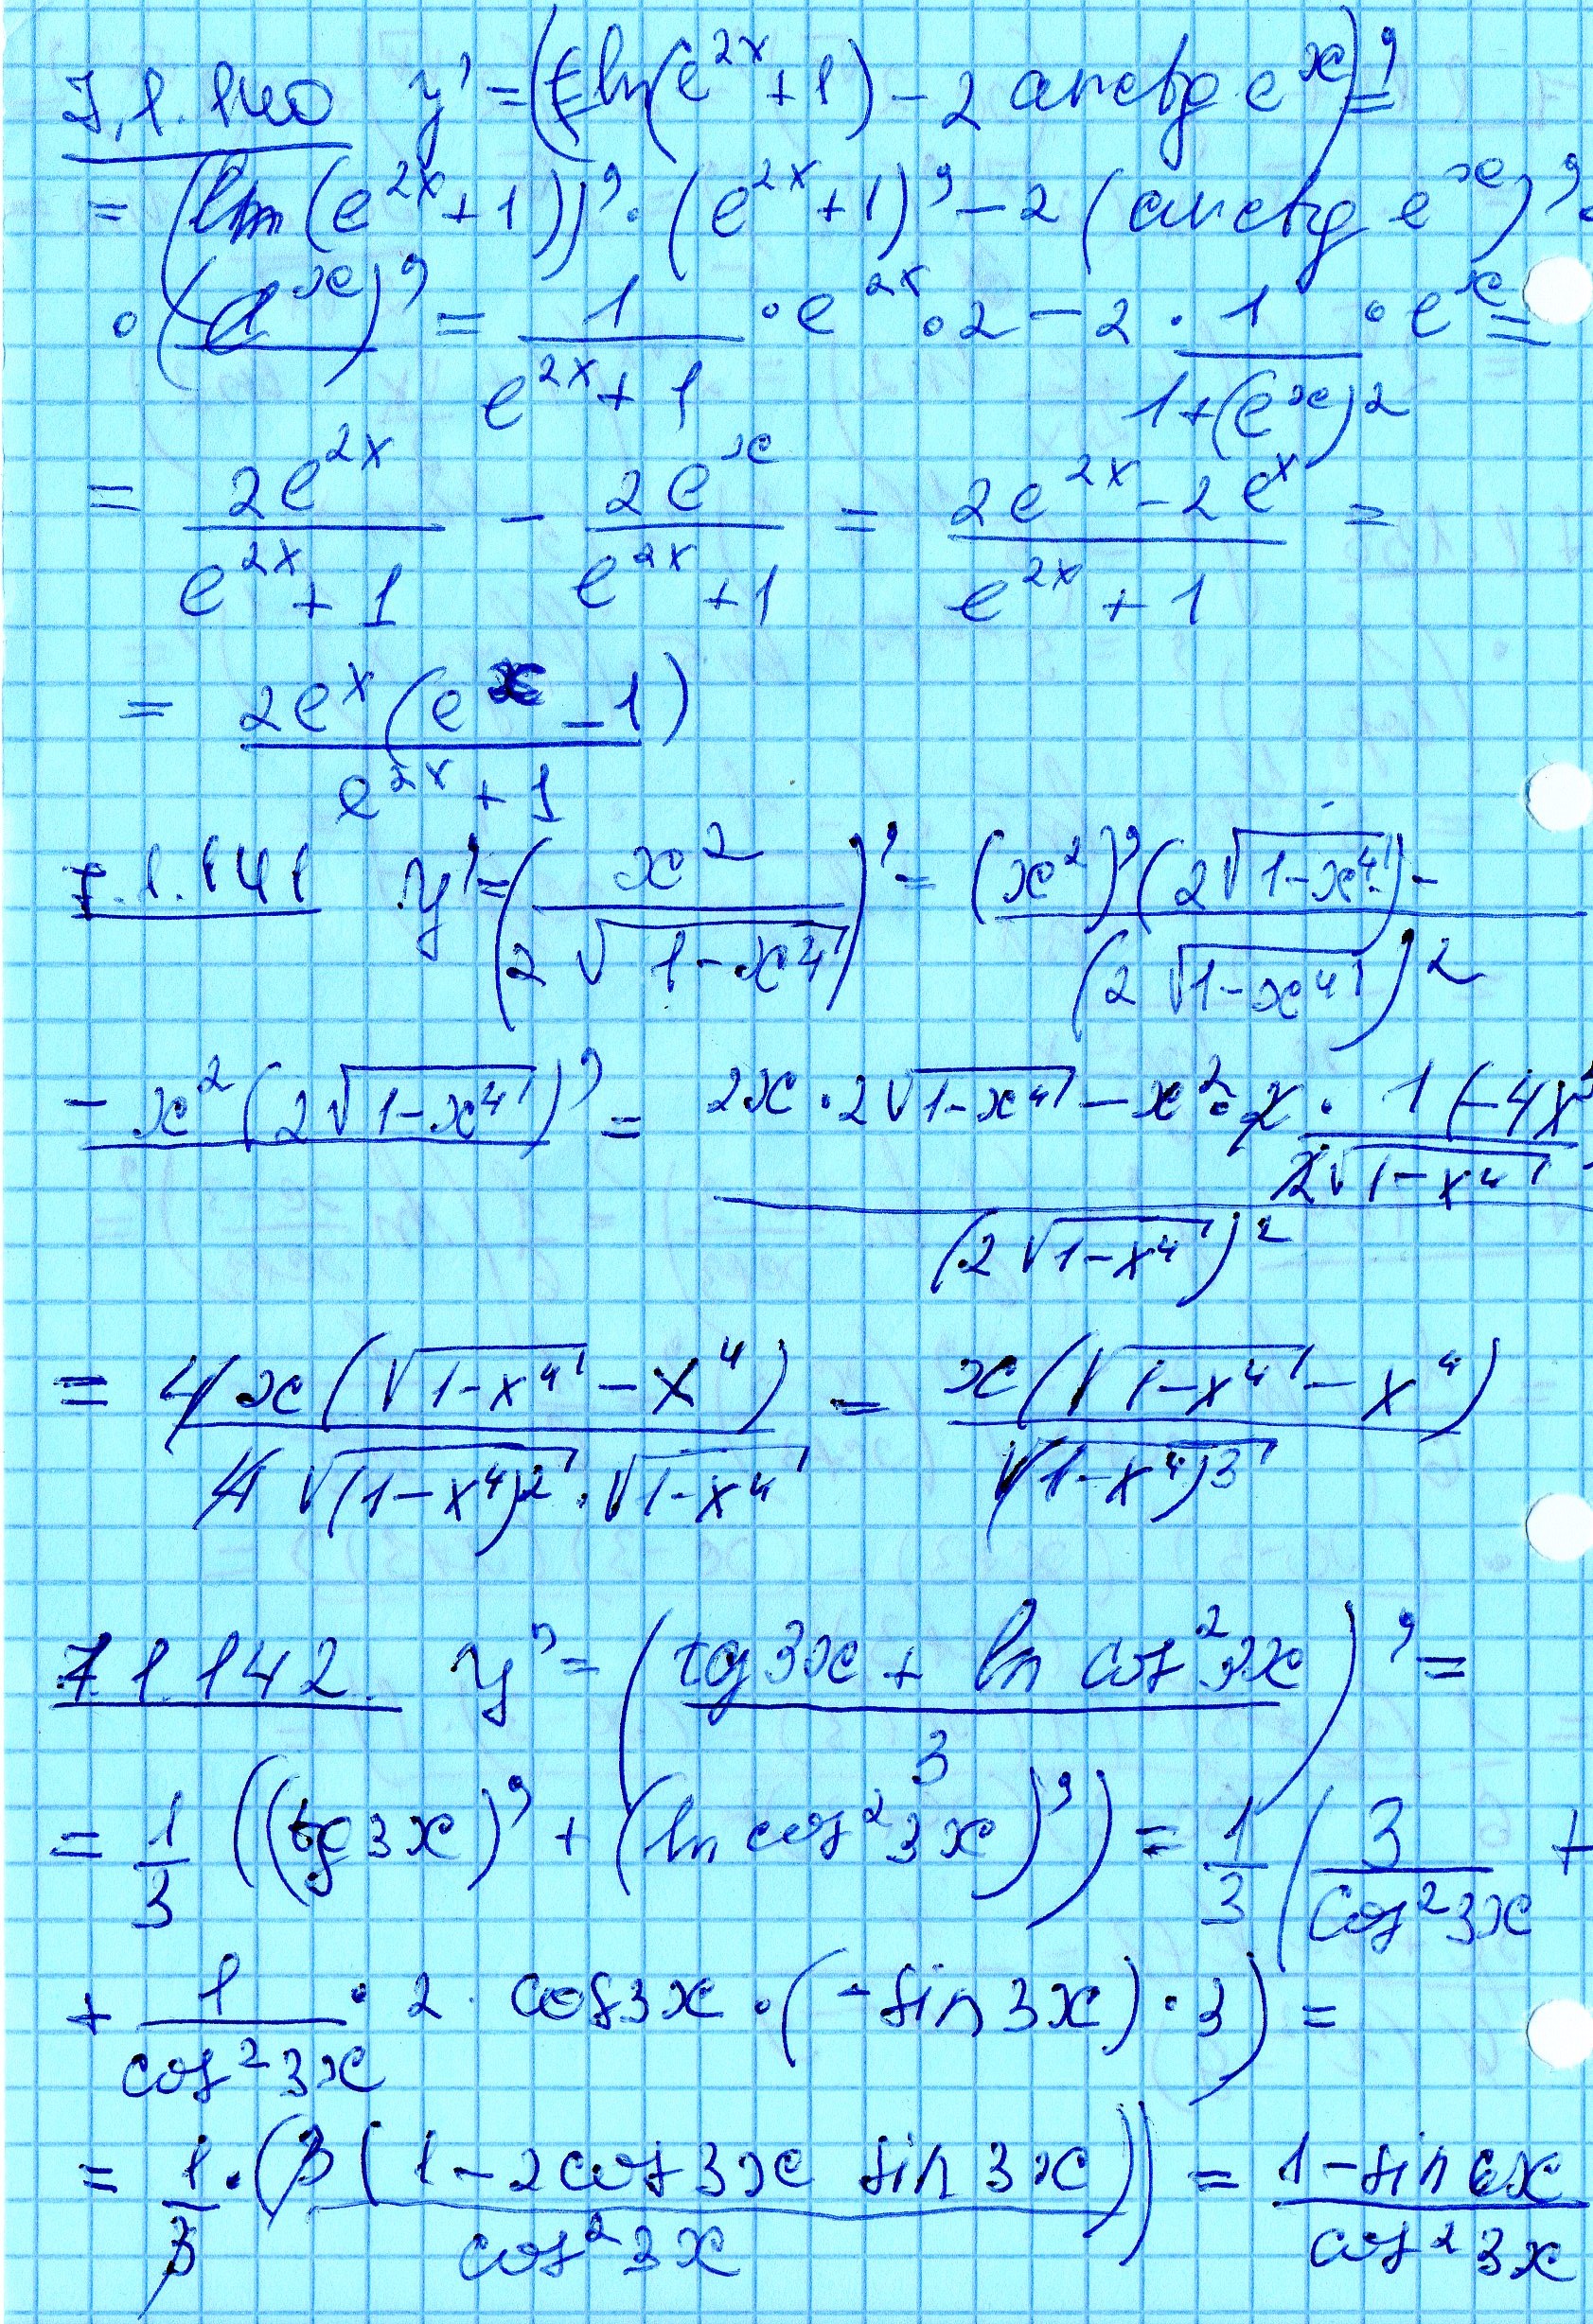 7.1.140 y' = (ln(e^{2x}+1) - 2 arctg e^x)' =
= (ln(e^{2x}+1))' · (e^{2x}+1)' - 2 (arctg e^x)' ·
· (e^x)' = \frac{1}{e^{2x}+1} · e^{2x} · 2 - 2 · \frac{1}{1+(e^x)^2} · e^x =
= \frac{2e^{2x}}{e^{2x}+1} - \frac{2e^x}{e^{2x}+1} = \frac{2e^{2x}-2e^x}{e^{2x}+1} =
= \frac{2e^x(e^x-1)}{e^{2x}+1}
7.1.141 y' = (\frac{x^2}{2\sqrt{1-x^4}})' = \frac{(x^2)'(2\sqrt{1-x^4}) -}{(2\sqrt{1-x^4})^2}
\frac{- x^2(2\sqrt{1-x^4})'}{} = \frac{2x · 2\sqrt{1-x^4} - x^2 · 2 · \frac{1(-4x^3}{2\sqrt{1-x^4}}}{(2\sqrt{1-x^4})^2}
= \frac{4x(\sqrt{1-x^4} - x^4)}{4\sqrt{(1-x^4)^2} · \sqrt{1-x^4}} = \frac{x(\sqrt{1-x^4} - x^4)}{\sqrt{(1-x^4)^3}}
7.1.142. y' = (\frac{tg 3x + ln cos^2 3x}{3})' =
= \frac{1}{3} ((tg 3x)' + (ln cos^2 3x)') = \frac{1}{3} (\frac{3}{cos^2 3x} +
+ \frac{1}{cos^2 3x} · 2 cos 3x · (-sin 3x) · 3) =
= \frac{1}{3} · (\frac{3(1 - 2 cos 3x sin 3x)}{cos^2 3x}) = \frac{1 - sin 6x}{cos^2 3x}